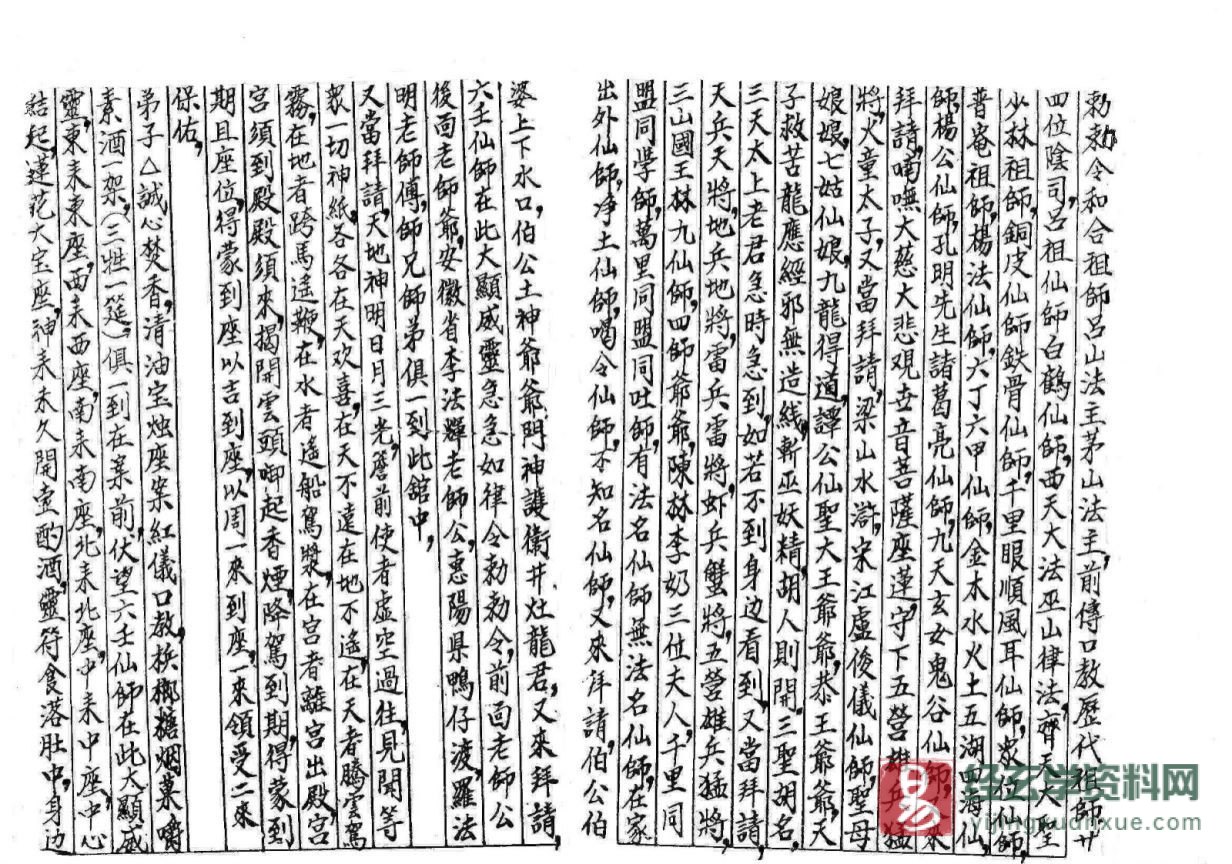 勅勅令和合祖師吕山法主茅山法主，前傳口教歷代祖師廿
四位陰司，吕祖仙師白鶴仙師，西天大法巫山律法齊天大聖
少林祖師，銅皮仙師鉄骨仙師，千里眼順風耳仙師，衆位仙師，
普庵祖師，楊法仙師，六丁六甲仙師，金木水火土五湖四海仙
師，楊公仙師，孔明先生諸葛亮仙師，九天玄女鬼谷仙師，又來
拜請，喃嘸大慈大悲覌世音菩薩座蓮，守下五营雄兵猛
將，火童太子，又當拜請，梁山水滸，宋江盧後儀仙師，聖母
娘娘，七姑仙娘，九龍得道，譚公仙聖大王爺爺，恭王爺爺，天
子救苦龍應經邪無造线，斬巫妖精，胡人則開，三聖胡名，
三天太上老君急時急到，如若不到身边看到，又當拜請，
天兵天將，地兵地將，雷兵雷將，虾兵蟹將，五营雄兵猛將，
三山國王林九仙師，四師爺爺，陳林李奶三位夫人，千里同
盟同學師，萬里同盟同吐師，有法名仙師無法名仙師，在家
出外仙師，净土仙師，喝令仙師，不知名仙師，又來拜請，伯公伯
婆上下水口，伯公土神爺爺，門神護衛井灶龍君，又來拜請，
六壬仙師在此大顯威靈急急如律令勅勅令，前面老師公
後面老師爺，安徽省李法輝老師公，惠陽県鴨仔渡羅法
明老師傅，師兄師弟俱一到此舘中，
又當拜請，天地神明日月三光，簷前使者虚空過往，見聞等
衆一切神紙，各各在天欢喜，在天不遠在地不遙，在天者騰雲駕
霧，在地者跨馬遙鞭，在水者遙船駕漿，在宫者離宫出殿，宫
宫須到殿殿須來，揭開雲頭啣起香煙，降駕到期，得蒙到
期且座位，得蒙到座以吉到座，以周一來到座，一來領受二來
保佑，
弟子△誠心焚香，清油宝烛座案紅儀口教，槟榔糖烟菓嚼
素酒一架，（三牲一筵）俱一到在案前，伏望六壬仙師在此大顯威
靈，東來東座，西來西座，南來南座，北來北座，中來中座，中心
結起蓮花大宝座，神來未久開壶酌酒，靈符食落肚中，身边
易
经玄学资料网
yijingxuanxue.com